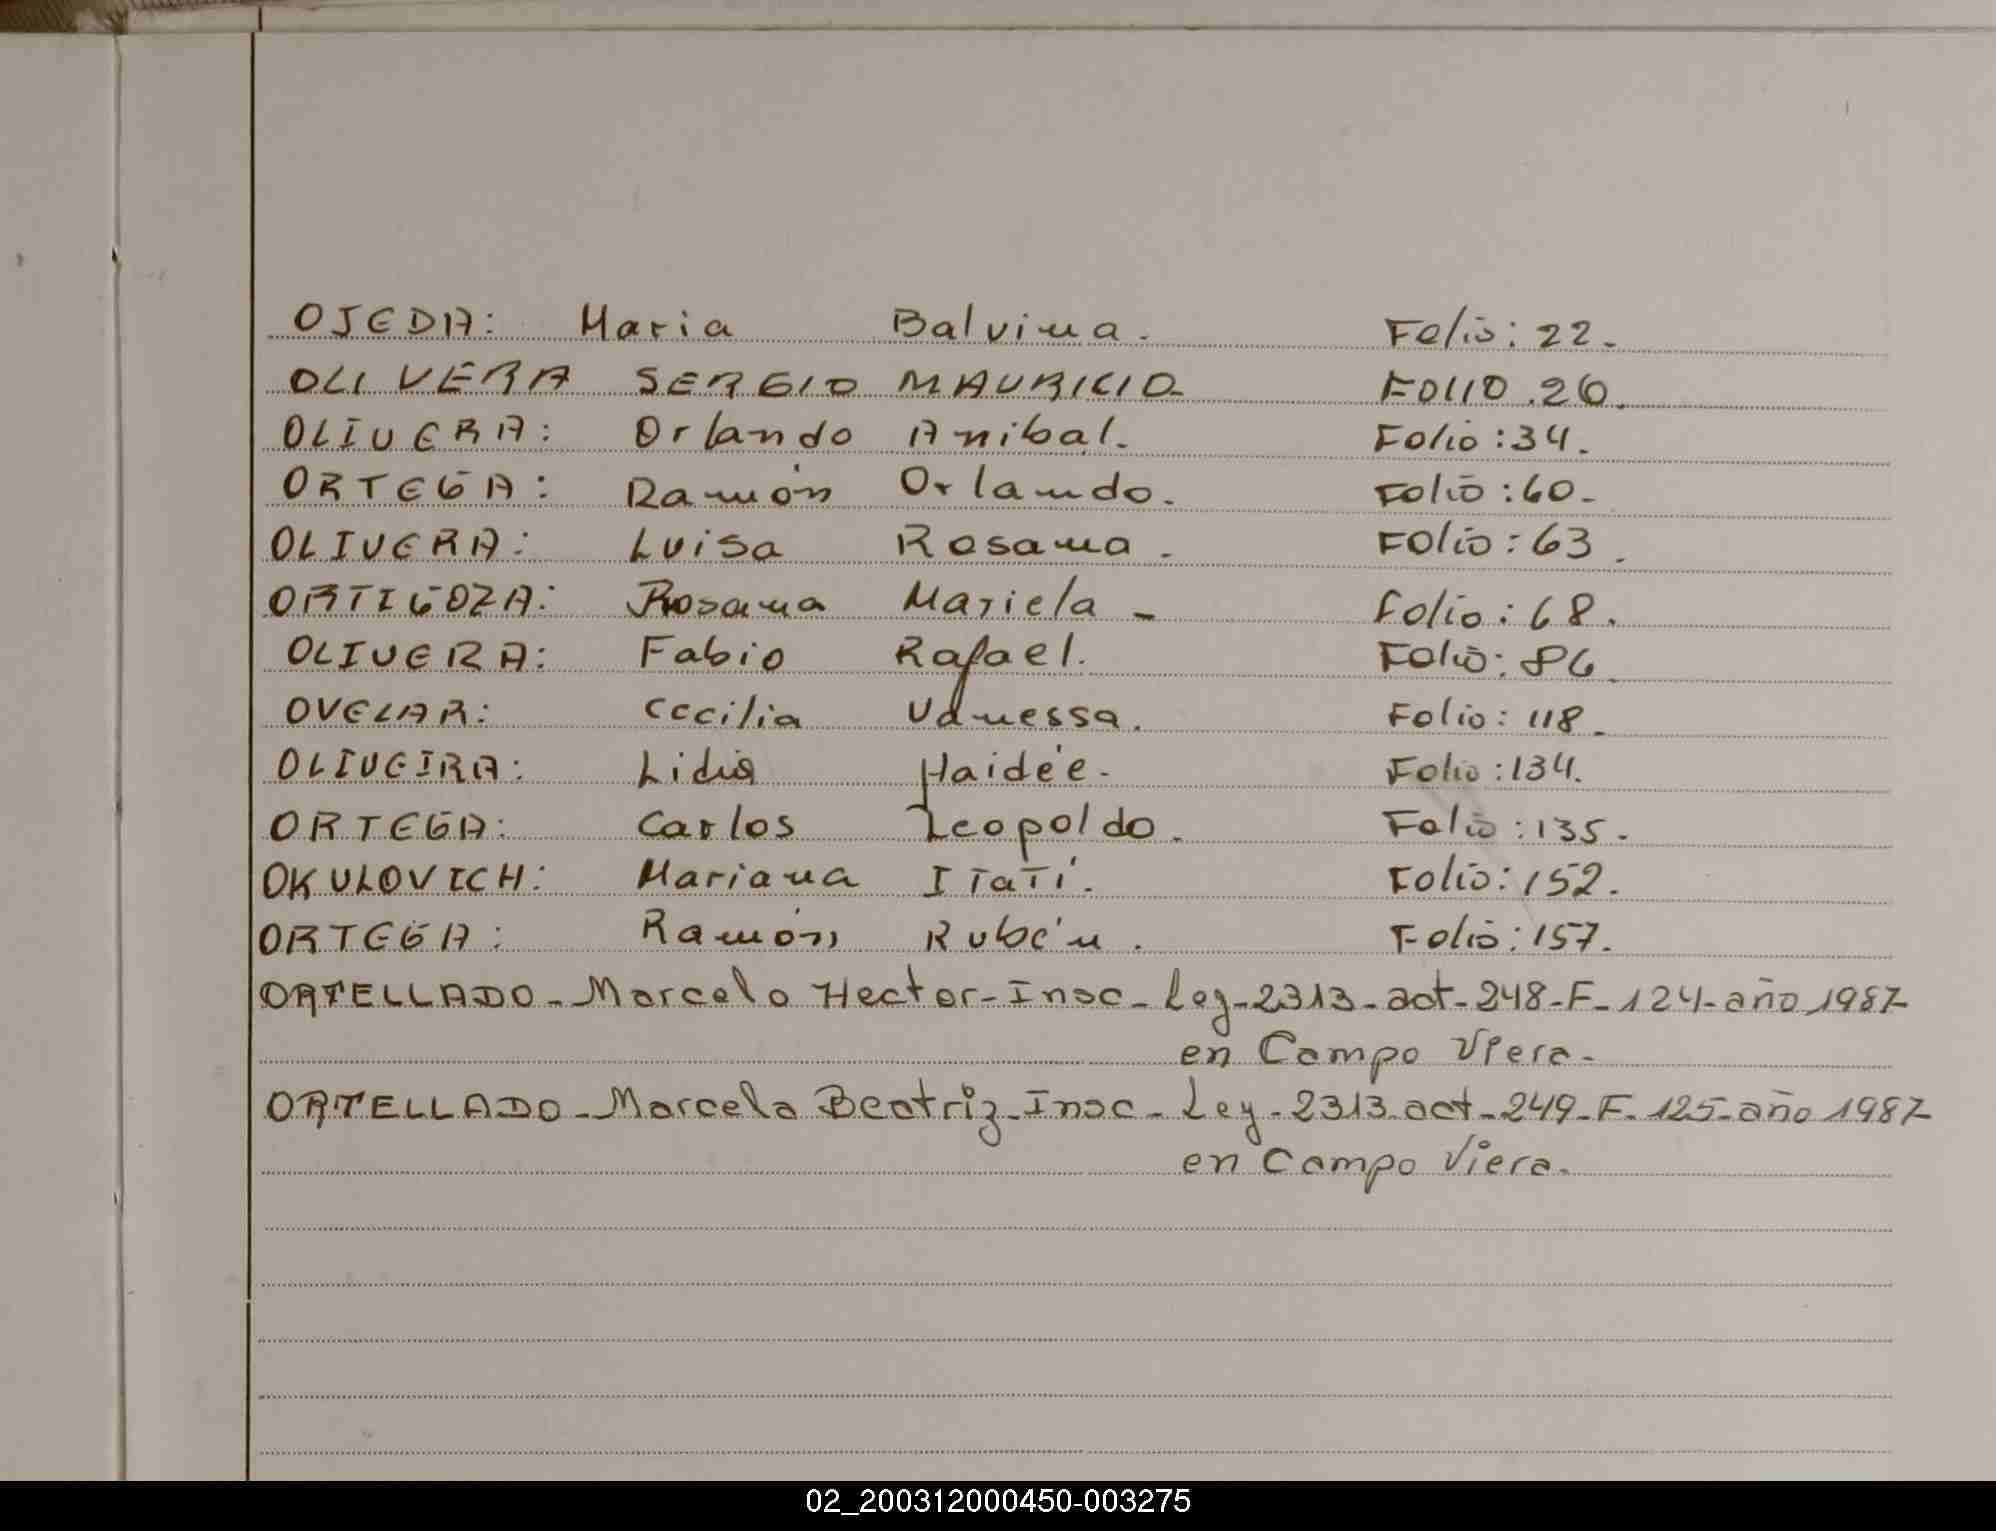 OJEDA: Maria Balvina. Folio: 22.
OLIVERA SERGIO MAURICIO FOLIO 26.
OLIVERA: Orlando Anibal. Folio: 34.
ORTEGA: Ramón Orlando. Folio: 60.
OLIVERA: Luisa Rosana. Folio: 63.
ORTIGOZA: Rosana Mariela - Folio: 68.
OLIVERA: Fabio Rafael. Folio: 86
OVELAR: Cecilia Vanessa. Folio: 118.
OLIVEIRA: Lidia Haidée. Folio: 134.
ORTEGA: Carlos Leopoldo. Folio: 135.
OKULOVICH: Mariana Itatí. Folio: 152.
ORTEGA: Ramón Rubén. Folio: 157.
ORTELLADO - Marcelo Hector - Insc - Ley - 2313 - act - 248 - F - 124 - año 1987
en Campo Viera.
ORTELLADO - Marcela Beatriz - Insc - Ley - 2313 act - 249 - F - 125 - año 1987
en Campo Viera.
02_200312000450-003275